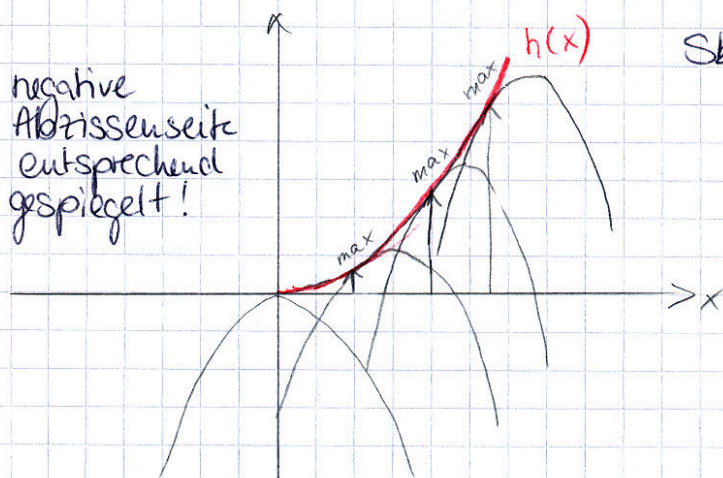 negative
Abzissenseite
entsprechend
gespiegelt!
h(x)
max
max
max
x